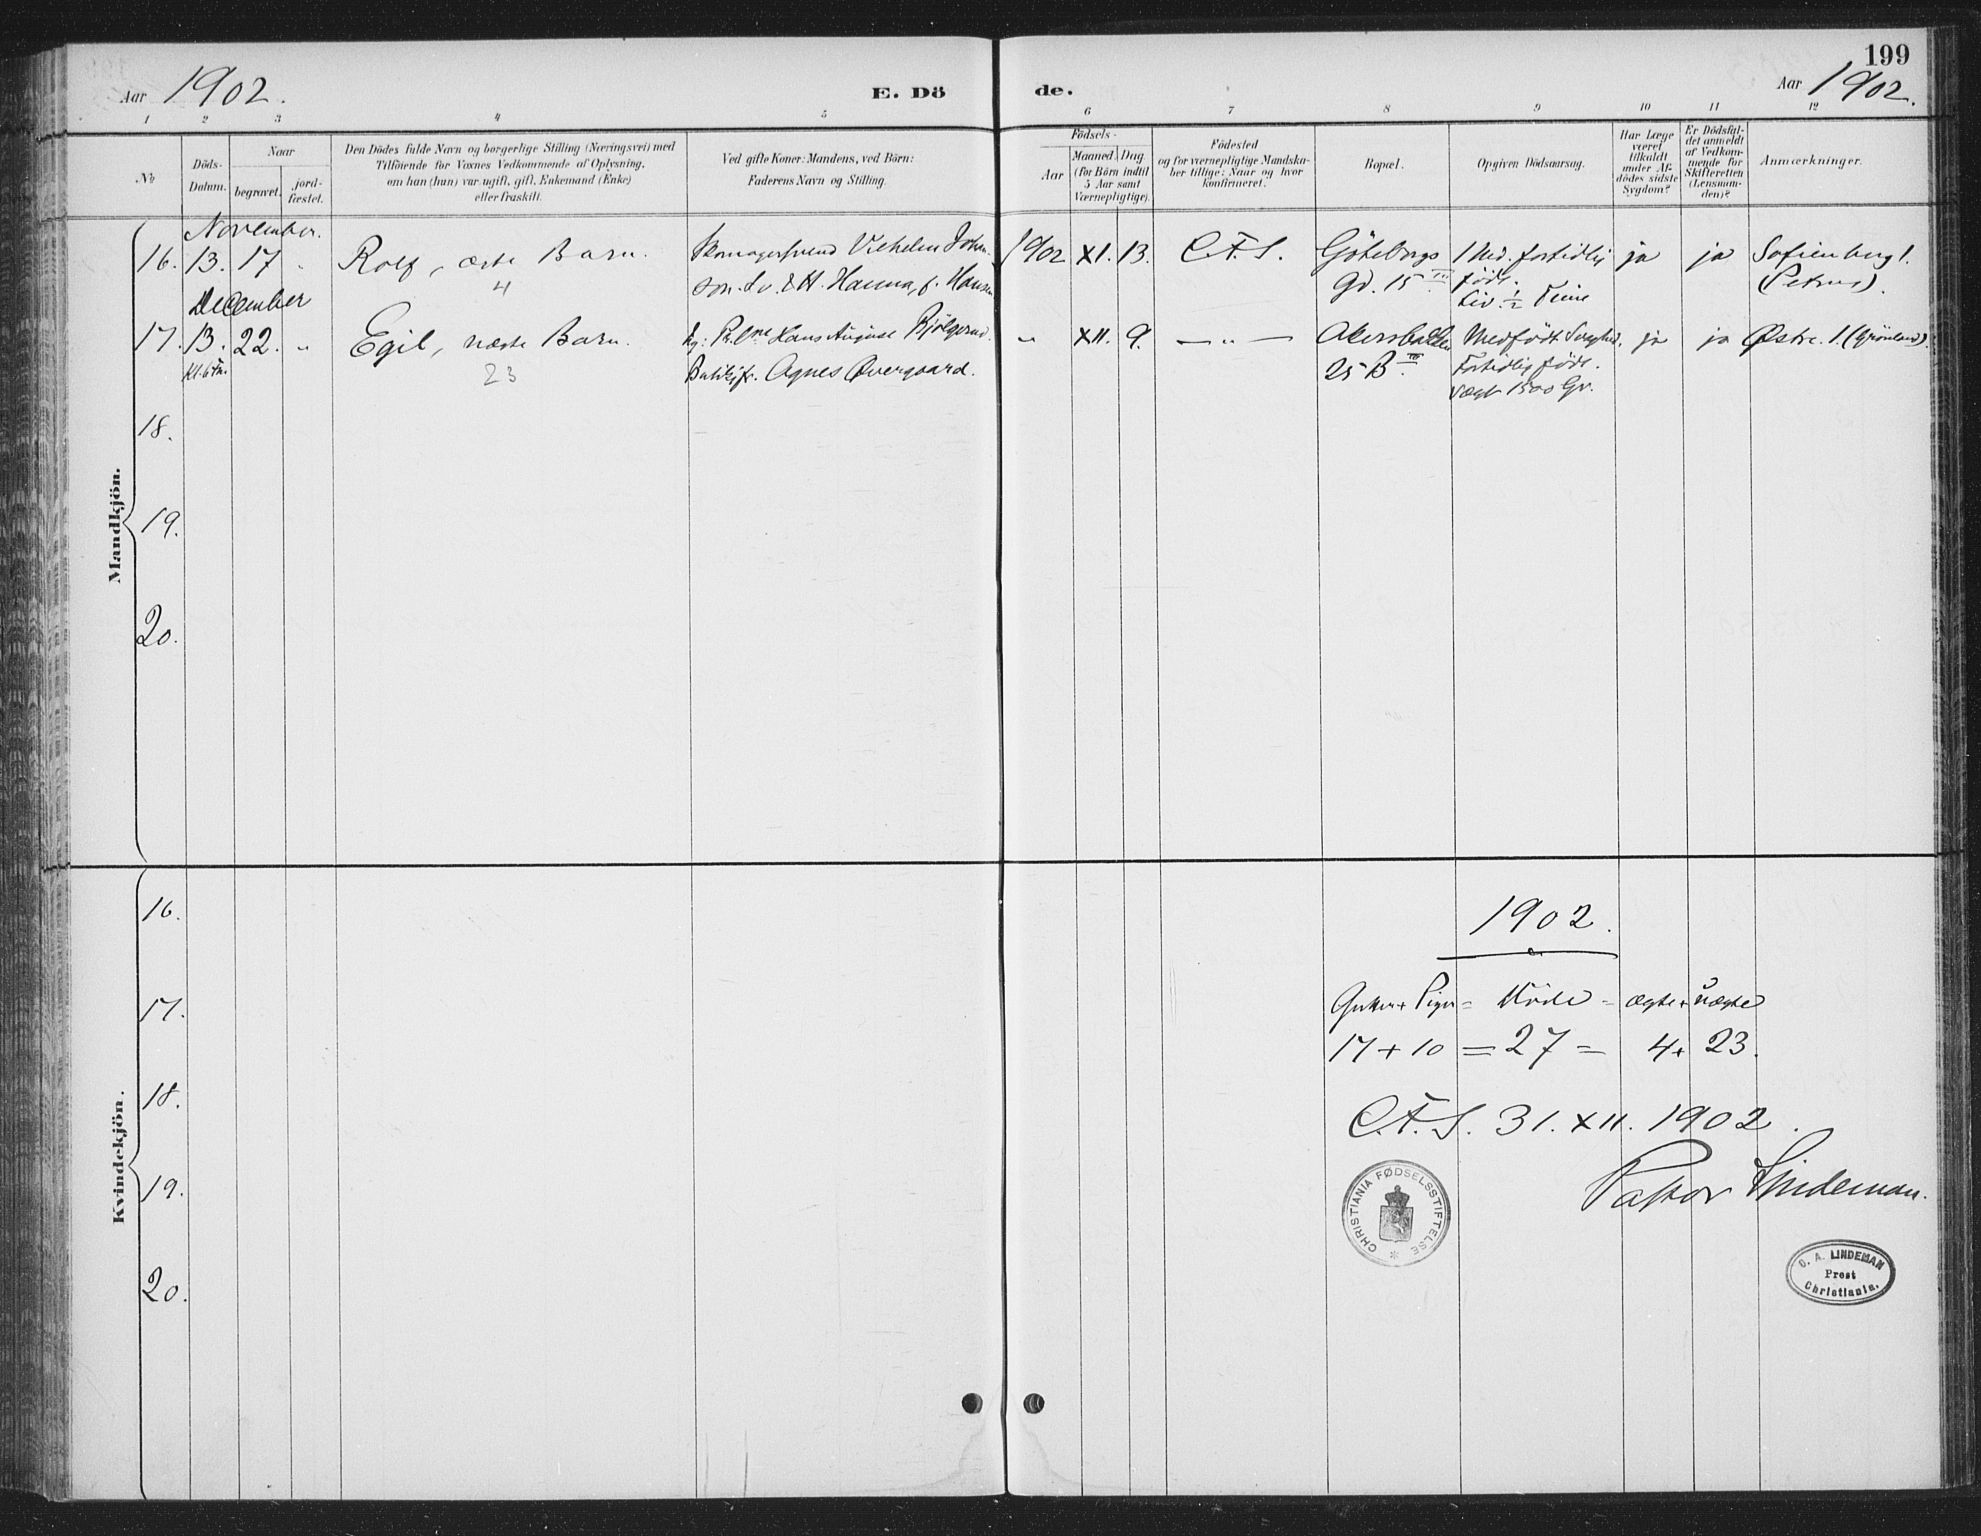 199
Aar 1902.
E. Dö
de.
Aar 1902.
1 2 3 4 5 6 7 8 9 10 11 12
No
Döds-
Datum.
Naar
begravet.
jord-
fæstet.
Den Dödes fulde Navn og borgerlige Stilling (Næringsvei) med
Tilföiende for Voxnes Vedkommende af Oplysning,
om han (hun) var ugift, gift, Enkemand (Enke)
eller fraskilt.
Ved gifte Koner: Mandens, ved Börn:
Faderens Navn og Stilling.
Födsels-
Aar
Maaned. Dag
(for Börn indtil
5 Aar samt
Værnepligtige).
Födested
og for værnepligtige Mandska-
ber tillige: Naar og hvor
konfirmeret.
Bopæl.
Opgiven Dödsaarsag.
Har Læge
været
tilkaldt
under Af-
dödes sidste
Sygdom?
Er Dödsfal-
det anmeldt
af Vedkom-
mende for
Skifteretten
(Lensman-
den)?
Anmærkninger.
Mandkjön.
November.
16. 13. 17 " Rolf, ægte Barn.
4
Skomagersvend Vilhelm Johan-
son. Sv. & H. Hanna, f. Hansen
1902 XI. 13. C.F.S.
Göteborgs
Gd. 15 III
1 Md. fortidlig
född.
Liv. 1/2 Time
ja ja Sofienberg 1.
(Petrus).
December
17. 13. 22. " Egil, uægte Barn.
23
Hans August Bjölgerud.
Butikjfr. Agnes Øvergaard.
" XII. 9. — " —
Akersbakken
25 B III
Medfödt Svaghed.
Fortidlig född.
Vægt 1500 Gr.
ja ja Østre. 1. (Grønland).
18.
19.
20.
Kvindekjön.
16.
17.
18.
19.
20.
1902.
Gutter + Piger = Döde = ægte + uægte
17 + 10 = 27 = 4 + 23.
C.F.S. 31. XII. 1902.
Pastor Lindeman.
CHRISTIANIA FØDSELSSTIFTELSE
O. A. LINDEMAN
Prest
Christiania.